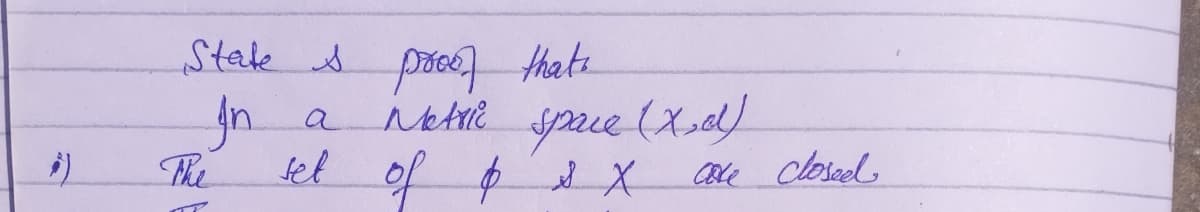 State & proof that:
In a Metric space (X,d)
i) The set of φ & X are closed.